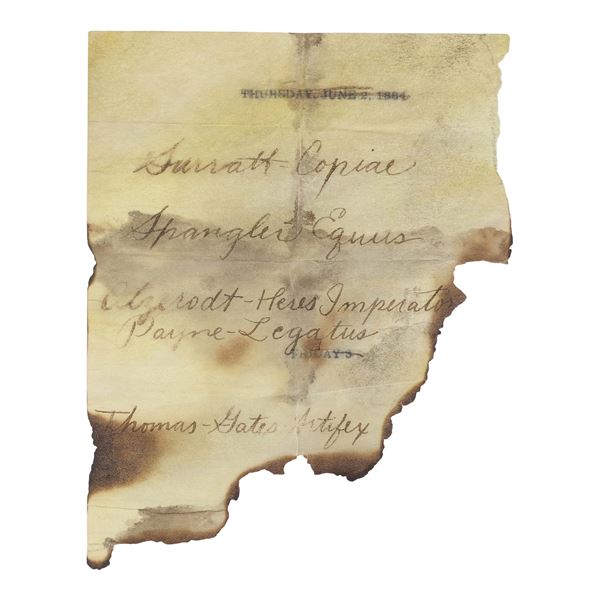 THURSDAY, JUNE 2, 1864.
Surratt-Copiae
Spangler-Equus
Atzerodt-Heres Imperator
Payne-Legatus
FRIDAY 3
Thomas-Gates-Artifex